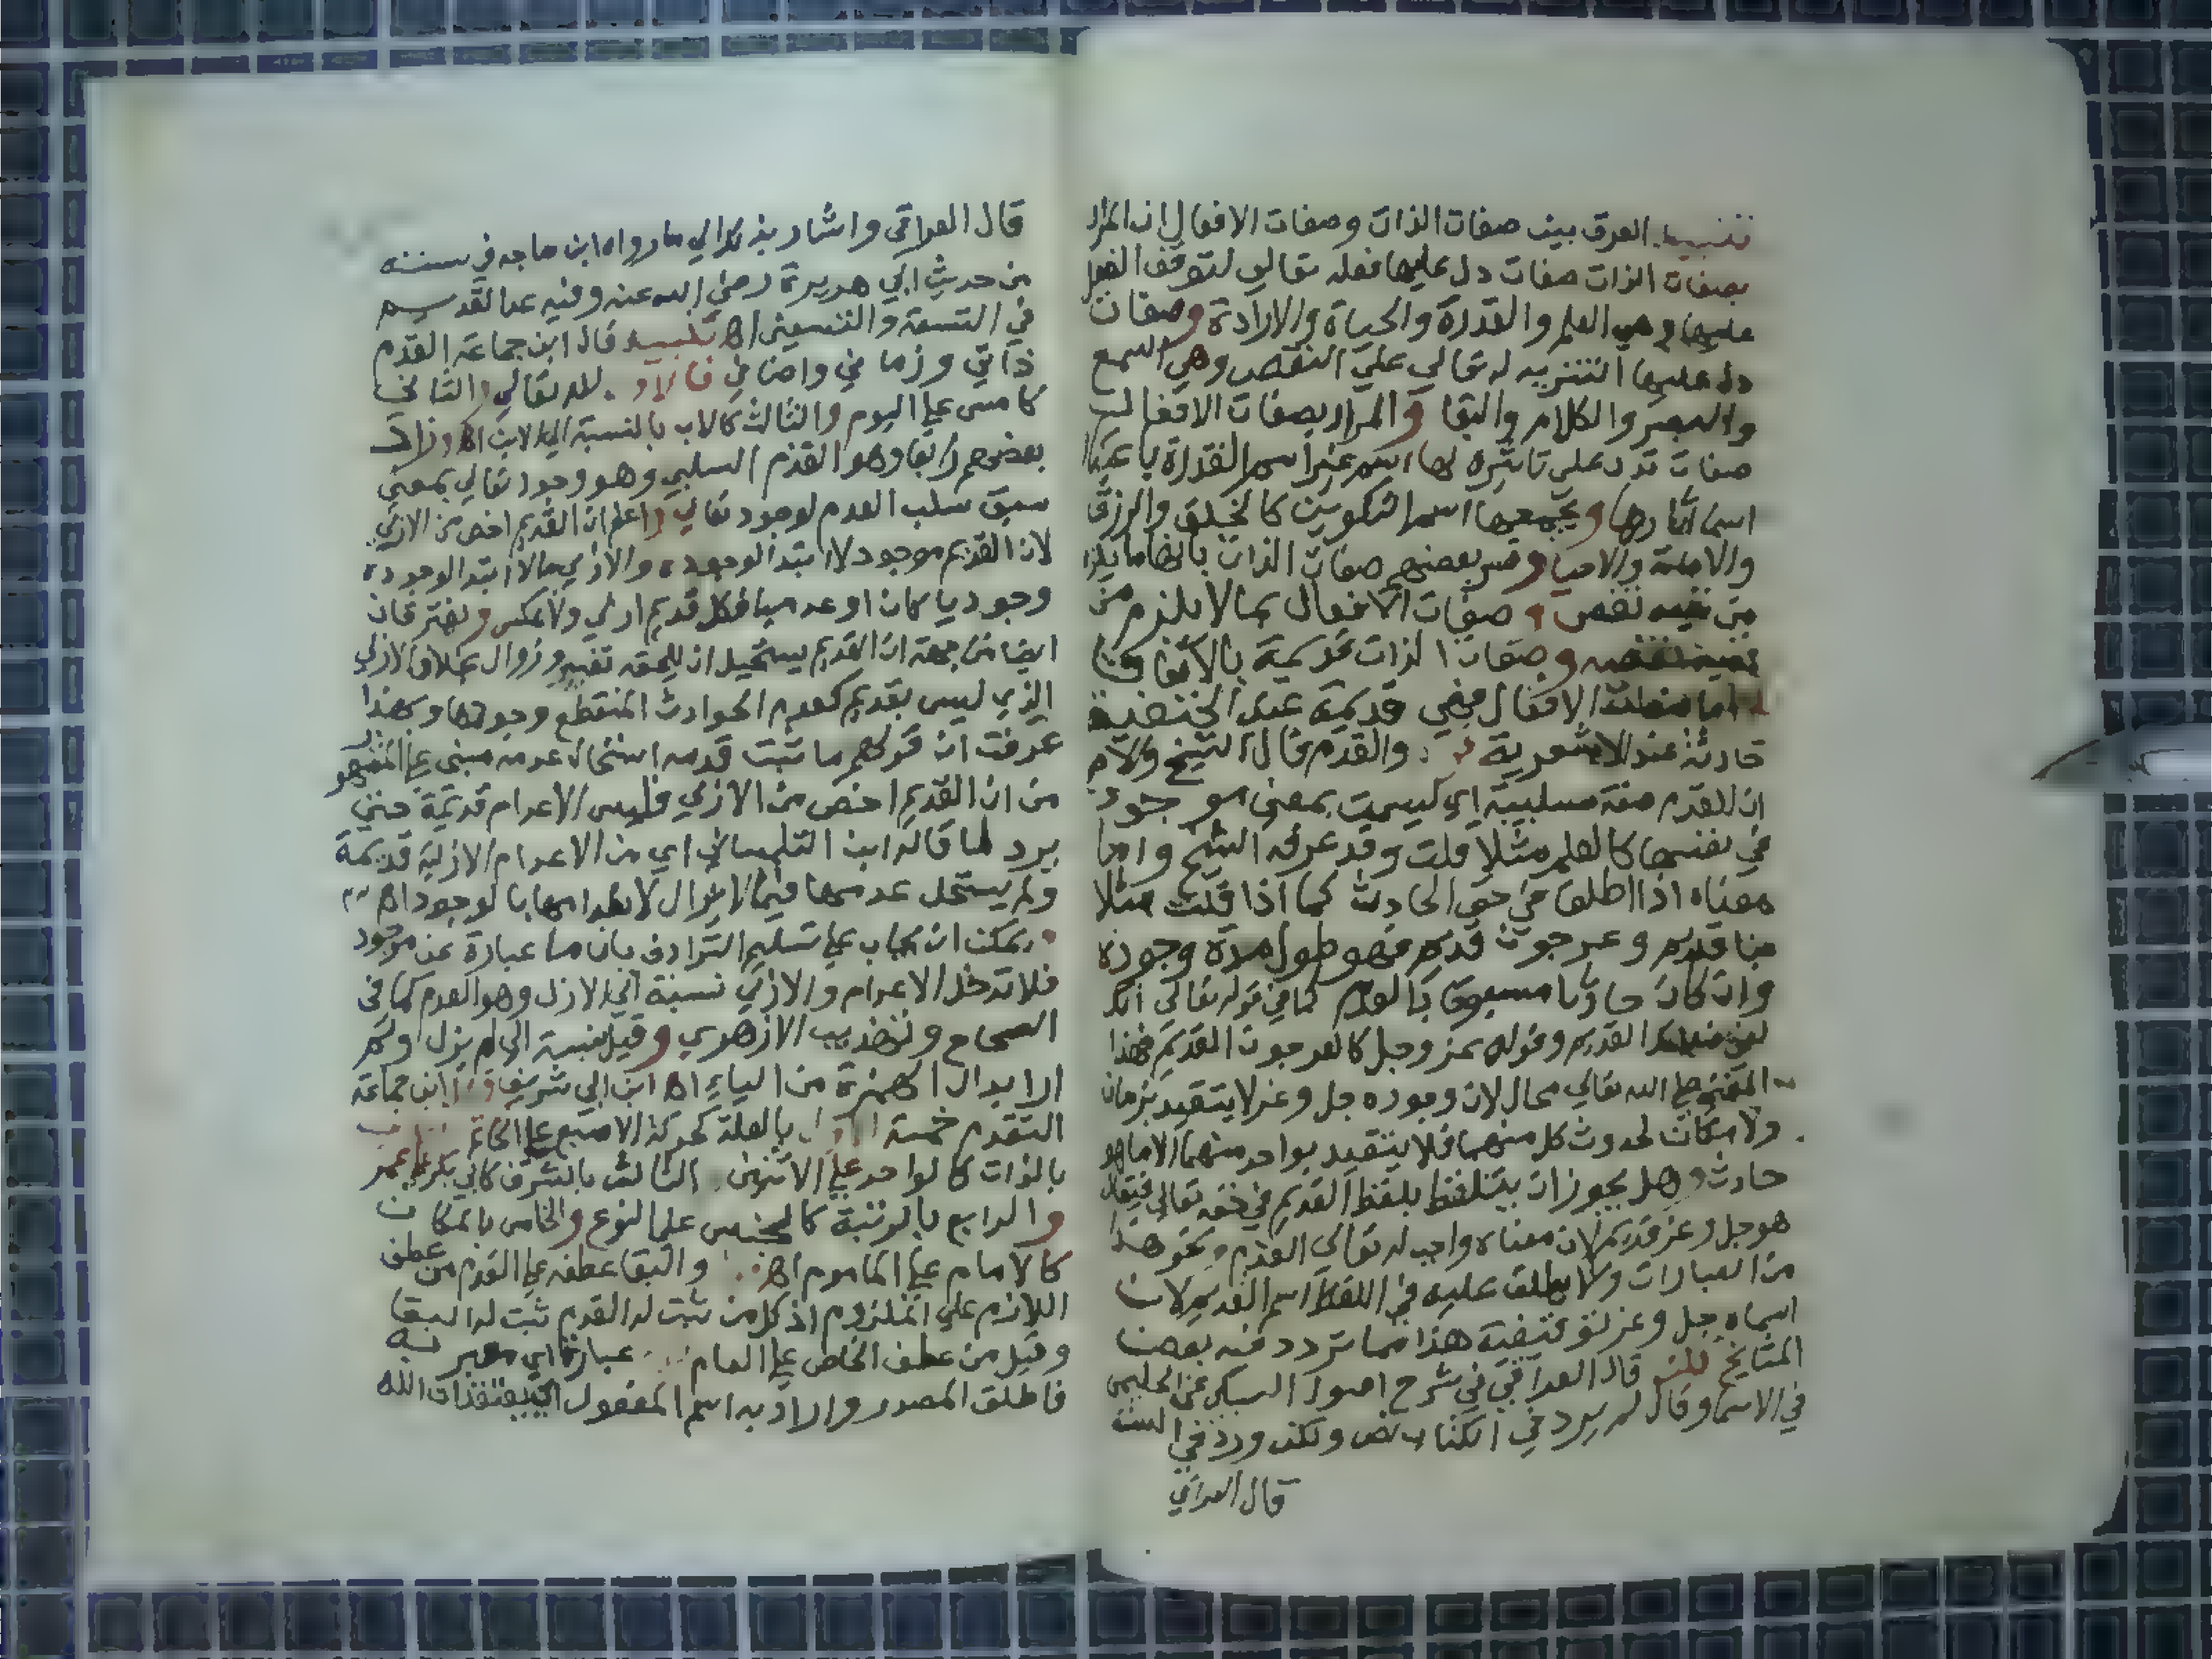 تنبيه الفرق بين صفات الذات وصفات الافعال ان المراد
بصفات الذات صفات دل عليها فعله تعالي لتوقف الفعل
عليها وهي العلم والقدرة والحياة والارادة وصفات
دل عليها التنزيه له تعالي علي النقص وهي السمع
والبصر والكلام والبقا والمراد بصفات الافعال
صفات تدل علي تاثيره لها اسم غير اسم القدرة باعتبار
اسما اثارها ويجمعها اسم التكوين كالخلق والرزق
والاماتة والاحيا وفسر بعضهم صفات الذات بانها ما يلزم
من نفيه نقص وصفات الافعال بما لا يلزم من
نفيه نقصه وصفات الذات قديمة بالاتفاق
اما صفات الافعال فهي قديمة عند الحنفية
حادثة عند الاشعرية والقدم قال الشيخ والام
ان القدم صفة سلبية اي ليست بمعني موجود
في نفسها كالعلم مثلا قلت وقد عرفه الشيخ واما
معناه اذا اطلق في حق الحادث كما اذا قلت مثلا
بنا قديم وعرجون قديم فهو طول مدة وجوده
وان كان حادثا مسبوقا بالعدم كما في قوله تعالي انك
لفي ضلالك القديم وقوله عز وجل كالعرجون القديم فهذا
المعني علي الله تعالي محال لان وجوده جل وعز لا يتقيد بزمان
ولا مكان لحدوث كل منهما فلا يتقيد بواحد منهما الا ما هو
حادث وهل يجوز ان يتلفظ بلفظ القديم في حقه تعالي فيقال
هو جل وعز قديم لان معناه واجب له تعالي القدم ونحو هذا
من العبارات ولا يطلق عليه في اللفظ اسم القديم لان
اسماه جل وعز توقيفية هذا مما تردد فيه بعض
المشايخ قال العراقي في شرح اصول السبكي عن الحليمي
في الاسما وقال لم يرد في الكتاب نص ولكن ورد في السنة
قال العراقي
قال العراقي واشار بذلك الي ما رواه ابن ماجه في سننه
من حديث ابي هريرة رضي الله عنه وفيه عد القديم
في التسعة والتسعين اه تنبيه قال ابن جماعة القدم
ذاتي وزماني واضافي فالاول لله تعالي والثاني
كامس علي اليوم والثالث كالاب بالنسبة الي الابن اه وزاد
بعضهم رابعا وهو القدم السلبي وهو وجود تعالي بمعني
سبق سلب العدم لوجود تعالي واعلم ان القديم اخص من الازلي
لان القديم موجود لا ابتدا لوجوده والازلي ما لا ابتدا لوجوده
وجوديا كان او عدميا فكل قديم ازلي ولا عكس ويفترقان
ايضا من جهة ان القديم يستحيل ان يلحقه تغيير وزوال بخلاف الازلي
الذي ليس بقديم كعدم الحوادث المنقطع وجودها وبهذا
عرفت ان قولهم ما ثبت قدمه استحال عدمه مبني علي المشهور
من ان القديم اخص من الازلي فليس الاعدام قديمة حتي
يرد لما قاله ابن التلمساني اي من الاعدام الازلية قديمة
ولم يستحل عدمها فيما لا يزال لانعدامها بالوجود اه
ويمكن ان يجاب علي تسليم الترادف بان ما عبارة عن موجود
فلا تدخل الاعدام والازلي نسبة الي الازل وهو القدم كما في
الصحاح وتهذيب الازهري وقيل نسبة الي لم يزل ولم
الا ابدال الهمزة من الياء اه ابن ابي شريف ابن جماعة
التقدم خمسة الاول بالعلة كحركة الاصبع علي الخاتم
بالذات كالواحد علي الاثنين الثالث بالشرف كابي بكر علي عمر
والرابع بالرتبة كالجنس علي النوع والخامس بالمكان
كالامام علي الماموم اه والبقا عطفه علي القدم من عطف
اللازم علي الملزوم اذ كل من ثبت له القدم ثبت له البقا
وقيل من عطف الخاص علي العام عبارة اي معبر به
فاطلق المصدر واراد به اسم المفعول الله